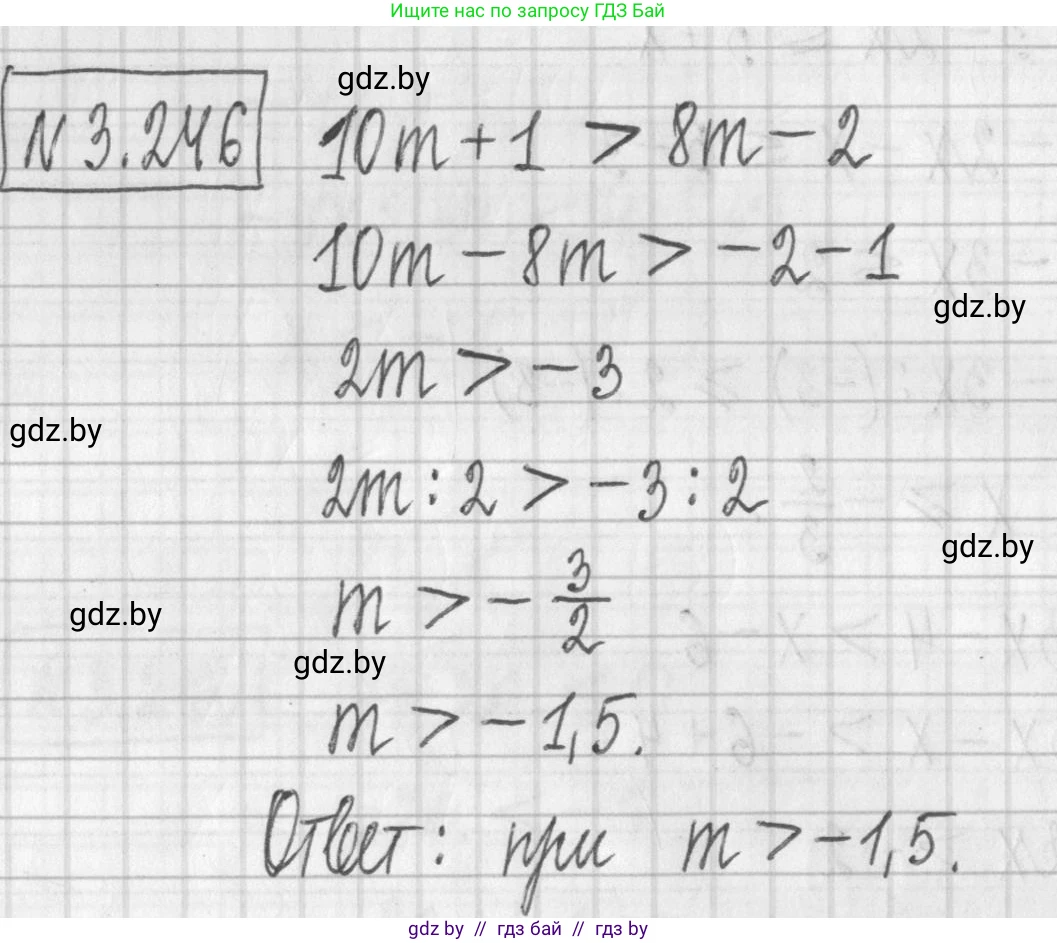 Ищите нас по запросу ГДЗ Бай
gdz.by
N 3.246 10m + 1 > 8m - 2
10m - 8m > -2 - 1
gdz.by
2m > -3
gdz.by
2m : 2 > -3 : 2
gdz.by
m > - 3/2
gdz.by
gdz.by
m > -1,5.
Ответ: при m > -1,5.
gdz by // гдз бай // гдз by